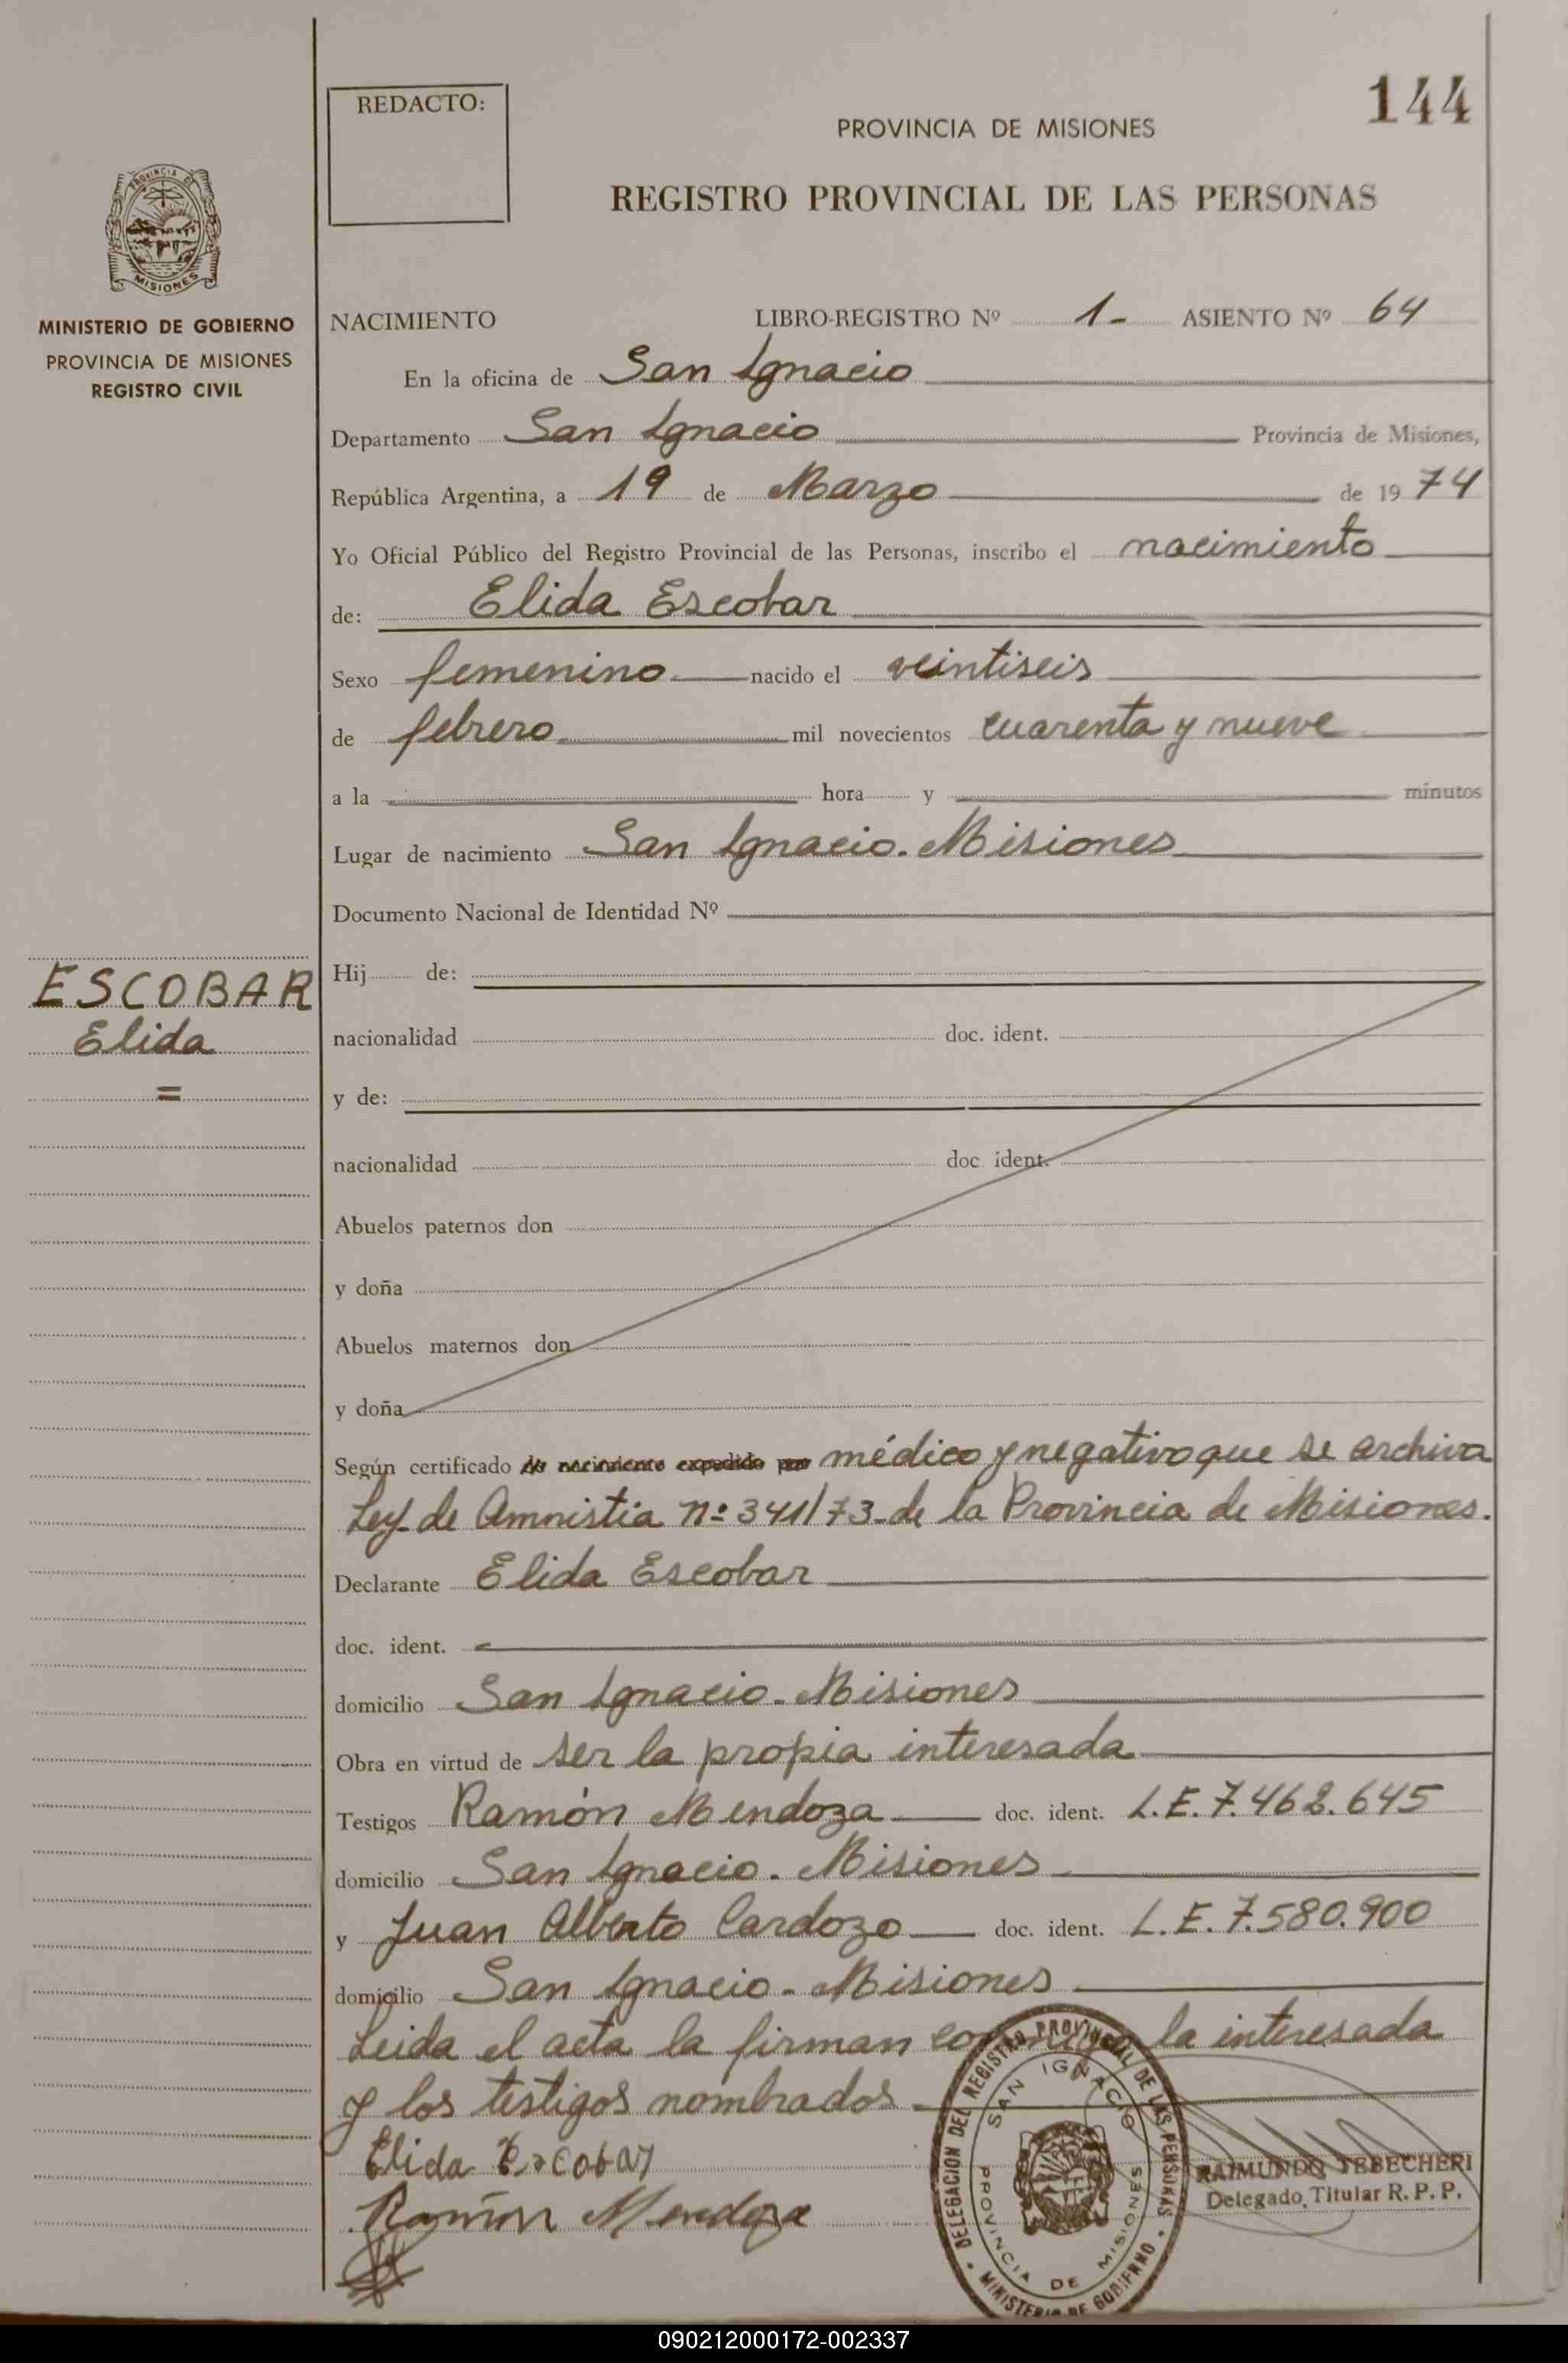 144
REDACTO:
PROVINCIA DE MISIONES
REGISTRO PROVINCIAL DE LAS PERSONAS
PROVINCIA DE
MISIONES
MINISTERIO DE GOBIERNO
PROVINCIA DE MISIONES
REGISTRO CIVIL
NACIMIENTO LIBRO-REGISTRO Nº 1- ASIENTO Nº 64
En la oficina de San Ignacio
Departamento San Ignacio Provincia de Misiones,
República Argentina, a 19 de Marzo de 1974
Yo Oficial Público del Registro Provincial de las Personas, inscribo el nacimiento
de: Elida Escobar
Sexo femenino nacido el veintiseis
de febrero mil novecientos cuarenta y nueve
a la hora y minutos
Lugar de nacimiento San Ignacio. Misiones
Documento Nacional de Identidad Nº
ESCOBAR
Elida
=
Hij de:
nacionalidad doc. ident.
y de:
nacionalidad doc. ident.
Abuelos paternos don
y doña
Abuelos maternos don
y doña
Según certificado de nacimiento expedido por médico y negativo que se archiva
Ley de Amnistia nº 341/73-de la Provincia de Misiones.
Declarante Elida Escobar
doc. ident.
domicilio San Ignacio. Misiones
Obra en virtud de ser la propia interesada
Testigos Ramón Mendoza doc. ident. L.E. 7.462.645
domicilio San Ignacio. Misiones
y Juan Alberto Cardozo doc. ident. L.E. 7.580.900
domicilio San Ignacio. Misiones
Leida el acta la firman conmigo la interesada
y los testigos nombrados
Elida Escobar
Ramón Mendoza
DELEGACION DEL REGISTRO PROVINCIAL DE LAS PERSONAS
SAN IGNACIO
PROVINCIA DE MISIONES
MINISTERIO DE GOBIERNO
RAIMUNDO TEBECHERI
Delegado Titular R. P. P.
090212000172-002337